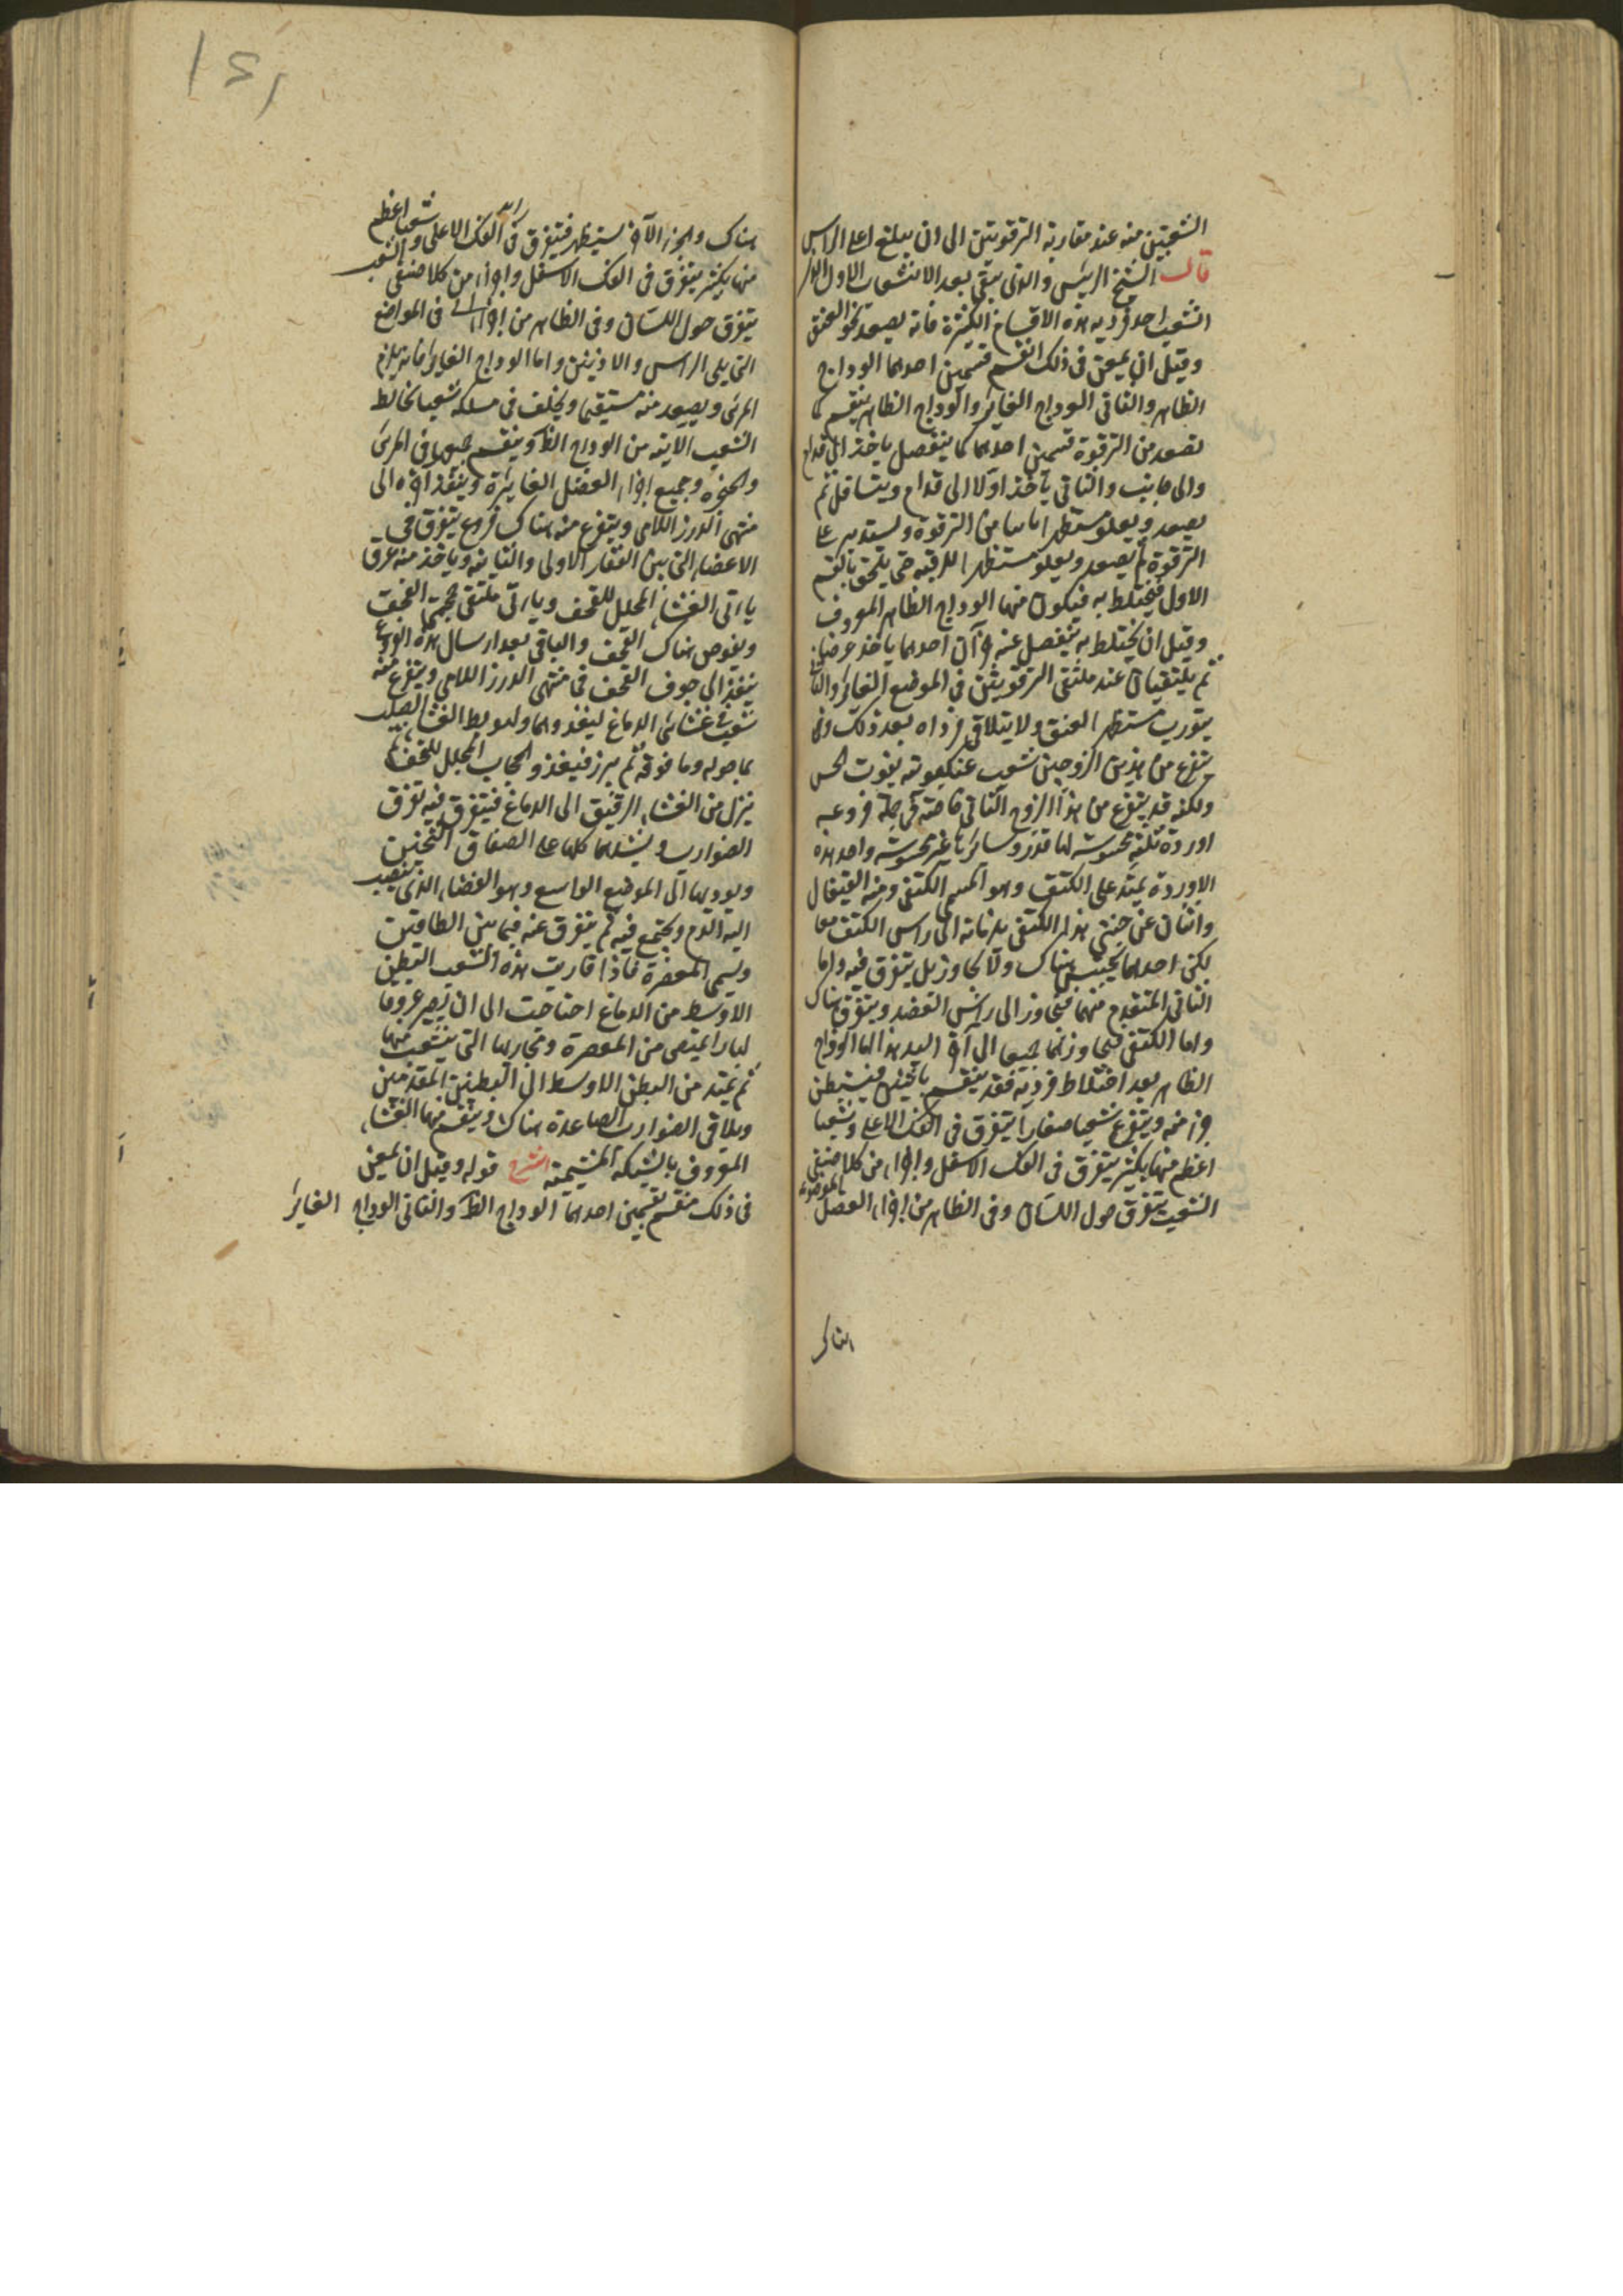 الشعبتين منه عند مقاربة الترقوتين الى ان يبلغ اعلى الراس
قال الشيخ الرئيس والذي يبقى بعد الانشعاب الاول الذي
انشعب احد فرديه هذه الاقسام الكثيرة فانه يصعد نحو العنق
وقبل ان يمعن في ذلك انقسم قسمين احدهما الوداج
الظاهر والثاني الوداج الغائر والوداج الظاهر ينقسم كما
تصعد من الترقوة قسمين احدهما كما ينفصل ياخذ الى قدام
والى جانب والثاني ياخذ اولا الى قدام ويتسافل ثم
يصعد ويعلو مستظهرا من الترقوة ويستدير على
الترقوة ثم يصعد ويعلو مستظهرا للرقبة حتى يلحق بالقسم
الاول فيختلط به فيكون منهما الوداج الظاهر المعروف
وقبل ان يختلط به ينفصل عنه جزآن احدهما ياخذ عرضا
ثم يلتقيان عند ملتقى الترقوتين في الموضع الغاير والثاني
يتورب مستظهر العنق ولا يتلاقى فرداه بعد ذلك
يتفرع من هذين الزوجين شعب عنكبوتية يفوت الحس
ولكنه قد يتفرع من هذا الزوج الثاني خاصة في جملة فروعه
اوردة ثلثة محسوسة لها قدر وسائرها غير محسوسة واحد هذه
الاوردة يمتد على الكتف وهو المسمى الكتفي ومنه القيفال
واثنان عن جنبتي هذا الكتفي يلزمانه الى راس الكتف معا
لكن احدهما يحتبس هناك ولا يجاوزه بل يتفرق فيه واما
الثاني المتقدم منهما فيجاوز الى راس العضد ويتفرق هناك
واما الكتفي فيجاوزهما جميعا الى آخر اليد هذا اما الوداج
الظاهر بعد اختلاط فرديه فقد ينقسم باثنين فيستبطن
جزء منه ويتفرع شعبا صغارا يتفرق في الفك الاعلى وشعبا
اعظم منها بكثير يتفرق في الفك الاسفل واجزاء من كلا صنفي
الشعب يتفرق حول اللسان وفي الظاهر من اجزاء العضل الموضوعة
هناك
هناك والجزء الآخر يستظهر فيتفرق في الفك الاعلى وشعبا اعظم
منها بكثير يتفرق في الفك الاسفل واجزاء من كلا صنفي الشعب
يتفرق حول اللسان وفي الظاهر من اجزاء في المواضع
التي يلي الراس والاذنين واما الوداج الغاير فانه يلزم
المرئ ويصعد معه مستقيما ويخلف في مسلكه شعبا تخالط
الشعب الاتية من الوداج الظ وينقسم جميعها في المرئ
والحنجره وجميع اجزاء العضل الغايرة وينفذ اخره الى
منتهى الدرز اللامي ويتفرع منه هناك فروع يتفرق في
الاعضاء التي بين الفقار الاولى والثانية وياخذ منه عرق
ياتي الغشاء المجلل للقحف وياتي ملتقى جمجمتي القحف
ويغوص هناك القحف والباقي بعد ارسال هذه الفروع
ينفذ الى جوف القحف في منتهى الدرز اللامي ويتفرع منه
شعب في غشائي الدماغ ليغذوهما وليربط الغشاء الصلب
بما حوله وما فوقه ثم يبرز فيغذو الحجاب المجلل للقحف ثم
ينزل من الغشاء الرقيق الى الدماغ فيتفرق فيه تفرق
الضوارب ويشملها كلها على الصفاق الثخين
ويوديها الى الموضع الواسع وهو الفضاء الذي ينصب
اليه الدم ويجتمع فيه ثم يتفرق عنه فيما بين الطاقين
ويسمى المعصرة فاذا قاربت هذه الشعب البطن
الاوسط من الدماغ احتاجت الى ان يصير عروقا
كبارا يمتص من المعصرة ومجاريها التي يتشعب منها
ثم يمتد من البطن الاوسط الى البطنين المقدمين
ويلاقي الضوارب الصاعدة هناك وينتسج منها الغشاء
المعروف بالشبكة المشيمية الشرح قوله وقبل ان يمعن
في ذلك ينقسم قسمين احدهما الوداج الظ والثاني الوداج الغاير